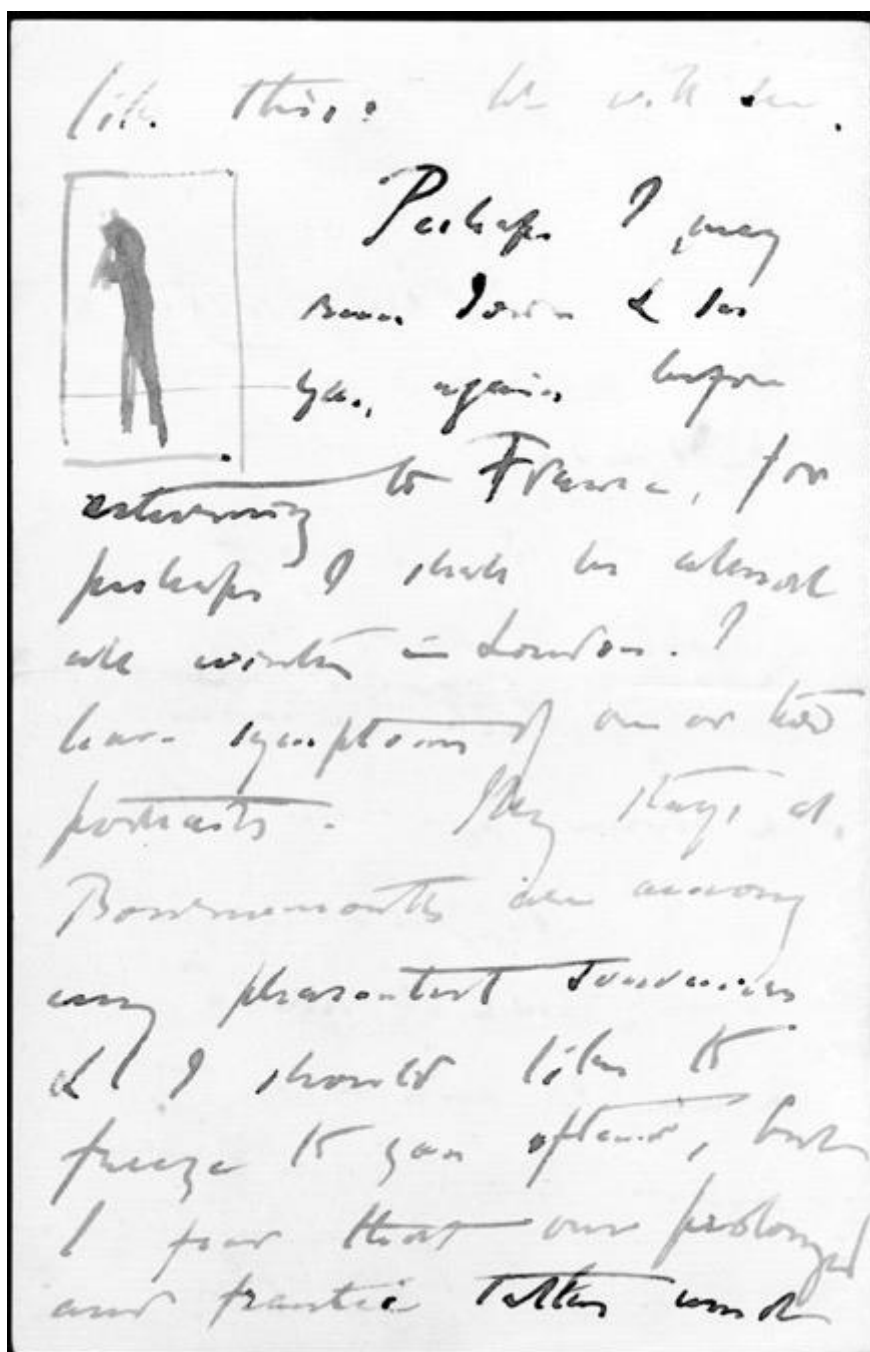 like this: We will see.
Perhaps I may
run down & see
you again before
returning to France, for
perhaps I shall be almost
all winter in London. I
have symptoms of one or two
portraits. My stays at
Bournemouth are among
my pleasantest souvenirs
& I should like to
freeze to you often, but
I fear that our prolonged
and frantic talks must